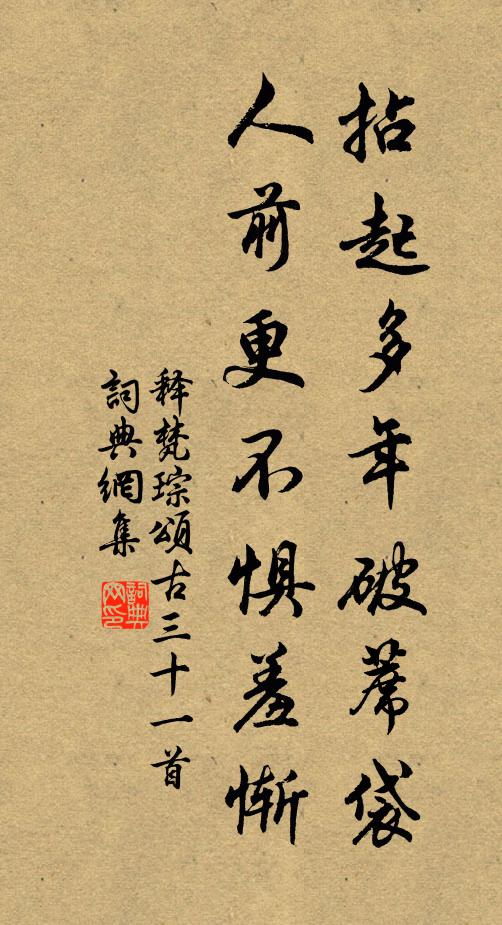 拈起多年破蓆袋
人前更不惧羞惭
释梵琮颂古三十一首
詞典網集
詞典网印